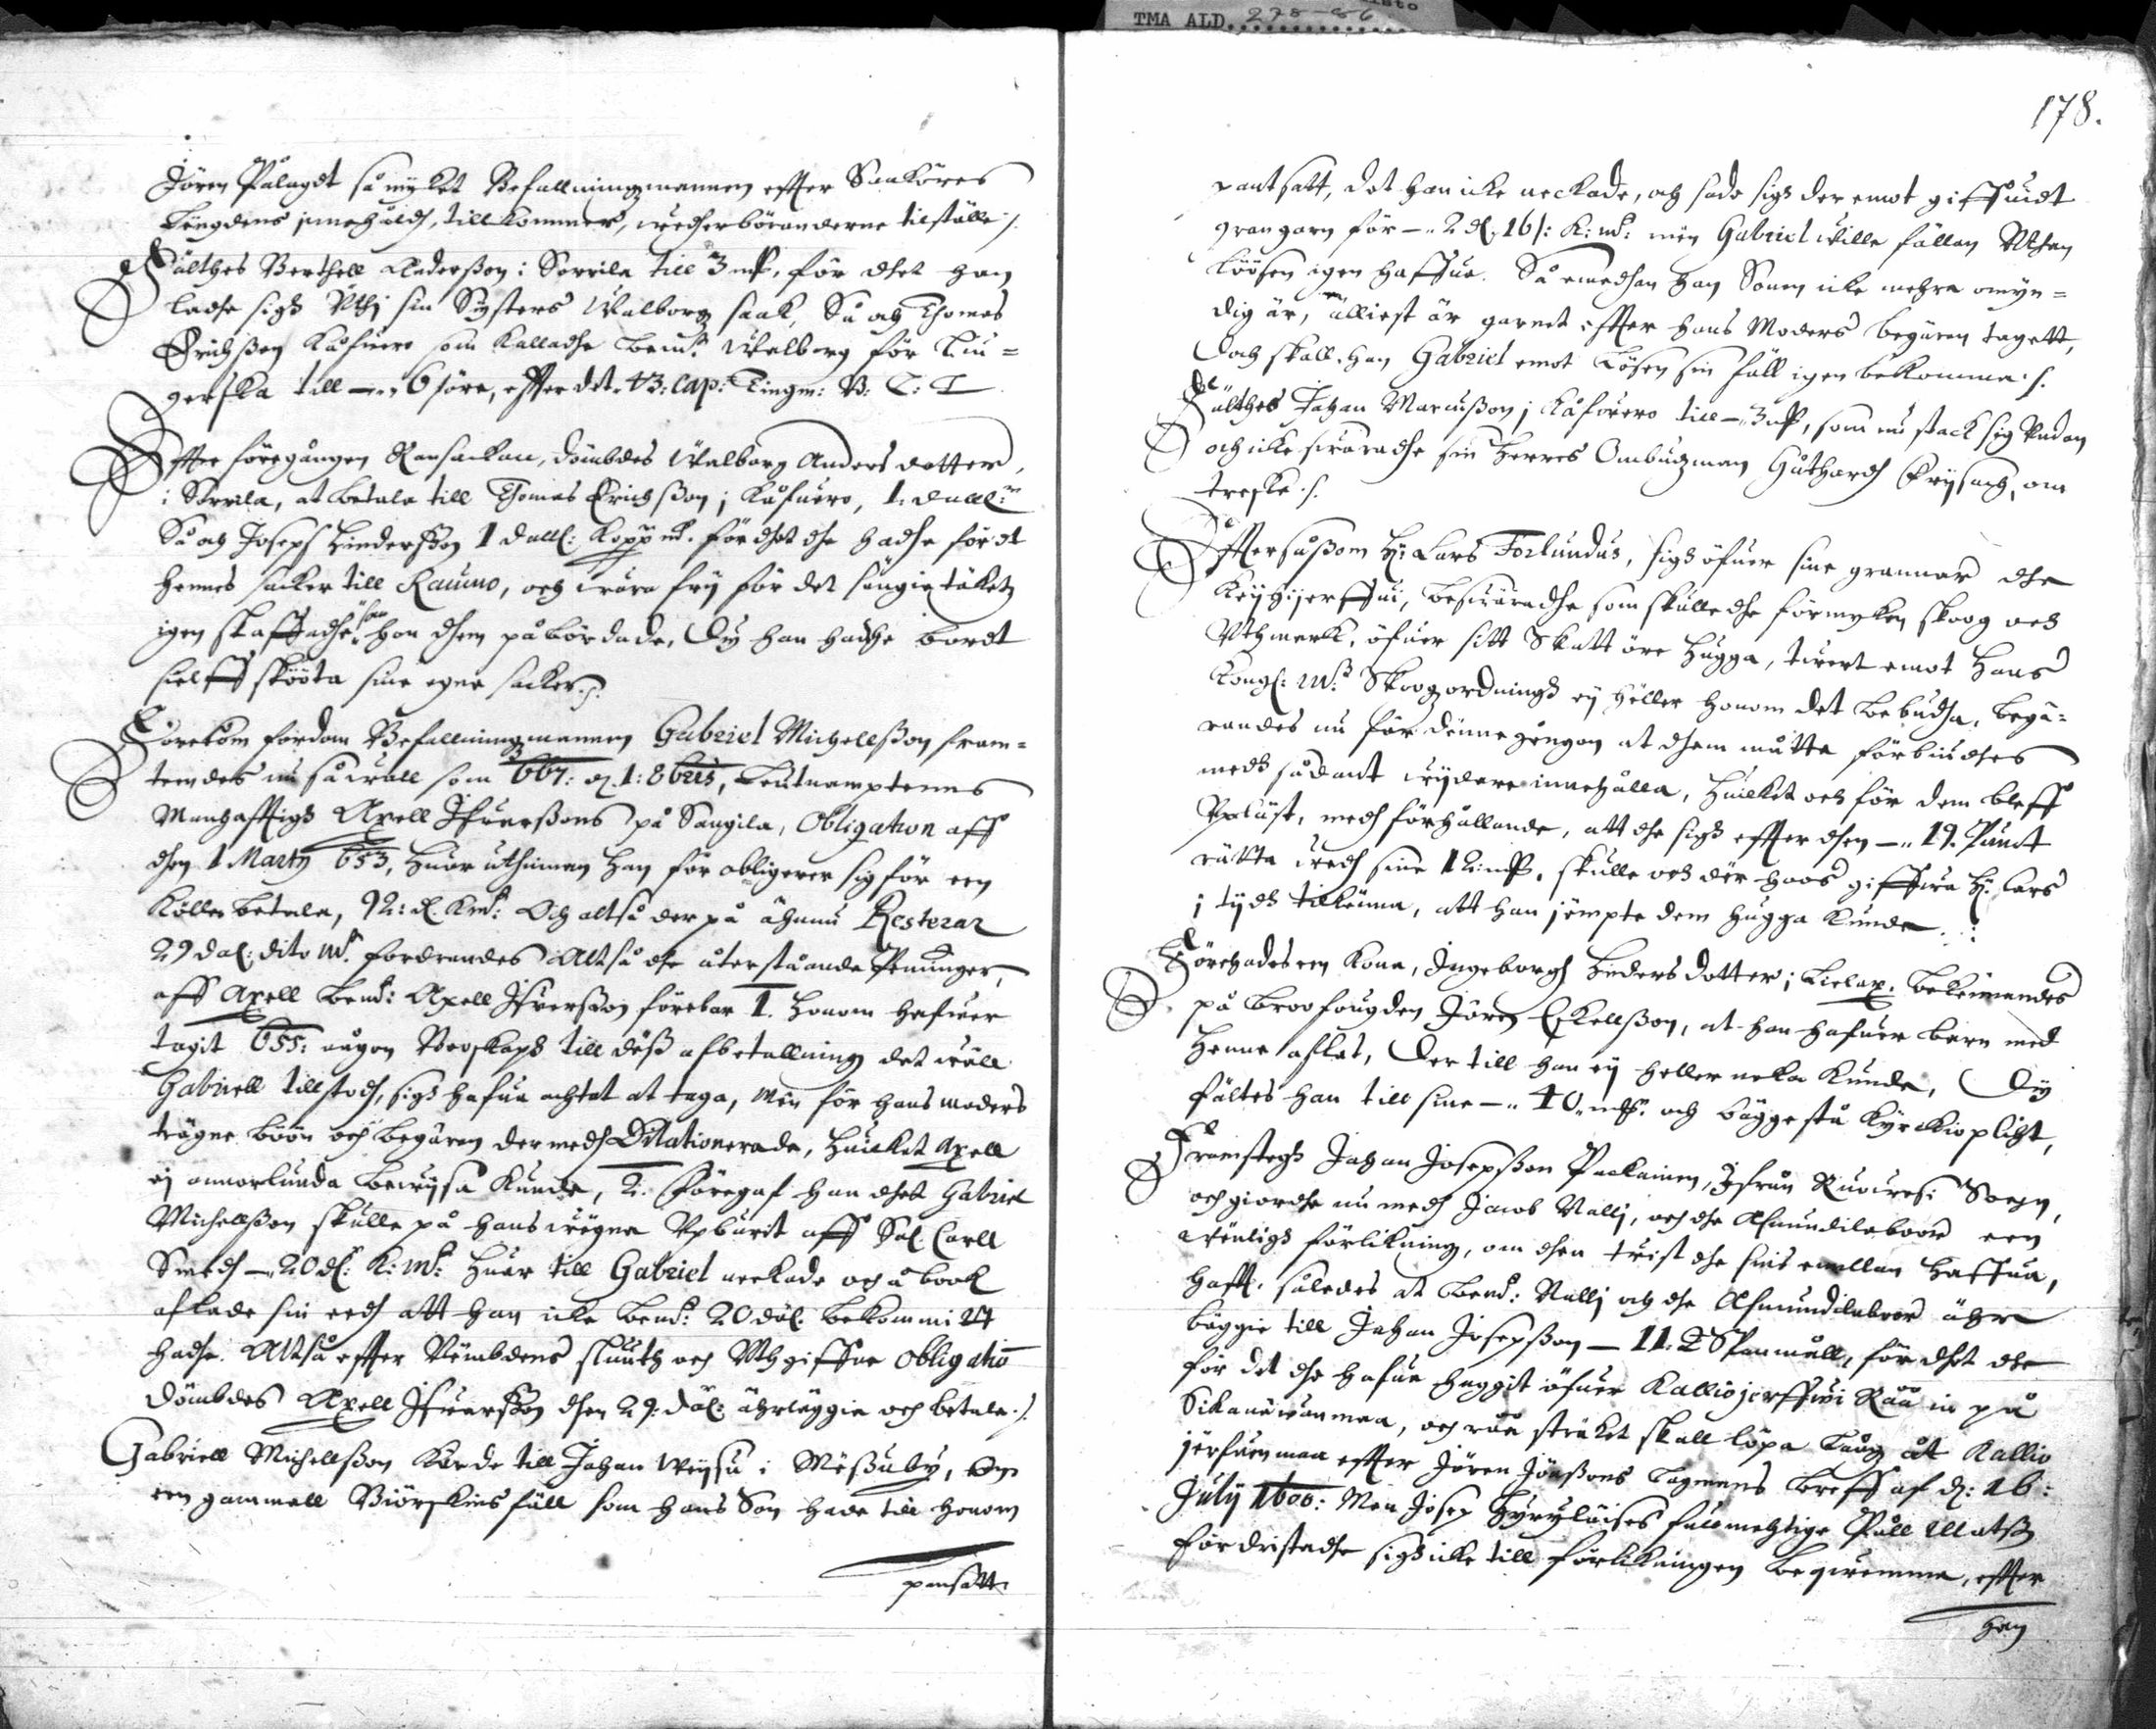 TMA ALD. 278-86
Jören Pålagdt så mÿket Befallningzmannen effter Saaköres
Lengdens innehåldh, tillkommer, wederböranderne tilställe ./.
Fälthes Berthell Andersson i Sorrila till 3 mk, för dhet han
ladhe sigh Vthj sin Systers Walborg saak, Så och Thomas
Erichsson Kåfuero som kalladhe bemt. Walborg för Tiu-
gerska till — 6 öre, effter det. 43: Cap: Tingm: B: L: L
Effter föregången Ransackan, dömbdes Walborg Anders dotter,
i Sorrila, at betala till Thomas Erichsson i Kåfuero, 1. daal:r
Så och Joseph Hindersson 1 dall: Kopp mt. för dhet dhe hadhe fördt
hennes saker till Raumo, och wara frij för det sängietäket
igen skaffadhe, som hon dhem påbördade, Dy han hadhe bordt
sielff skööta sine egne saker ./.
Förekom fordom Befallningzmannen Gabriel Michellsson fram-
temdes nu så wäll som 667: d. 1: 8bris, Leutnamptens
Manhafftigh Axell Ifuarssons på Sangila, Obligation aff
dhen 1 Martij 653, huar uthinnan han för obligerer sig för een
Koller betala, 92: d. Kmt: Och altså der på ähnnu Resterar
29 dal: dito mt. fordrandes Altså dhe återståande Penninger,
aff Axell bemt: Axell Ifuersson förebar 1. honom hafuer
tagit 655: någon Booskaph till dess afbetallning det wäll
Gabriell tillstodh, sigh hafua achtat at taga, Men för hans moders
trägne böön och begäran dermedh Dilationerade, huilket Axell
ej annorlunda bewijsa kunde, 2. Föregaf han dhet Gabriel
Michellsson skulle på hans wägna Vpburit aff Sal. Carll
Smedh — 20 dl: K: mt: huar till Gabriel neckade och å book
aflade sin eedh att han icke bemt: 20 dal. bekommitt
hadhe. Altså effter Nembdens sluuth och Vthgiffne Obligatio
dömbdes Axell Ifuarsson dhen 29: dal: ährläggia och betala ./.
Gabriell Michellsson kärde till Johan Wijsu i Messuby, om
een gammall Biörskins fäll som hans Son hade till honom
pantsatt
178.
pantsatt, det han icke neckade, och sade sigh der emot giffuidt
grangarn för — 2 d. 16 /: K: mt: men Gabriel wille fällen Vthan
löösen igen haffua. Så emedhan han Sonen icke mehra omyn-
dig är, älliest är garnet effter hans Moders begäran tagett,
doch skall han Gabriel emot Lösen sin fäll igen bekomma ./.
Fälthes Johan Marcusson i Kåfuero till — 3 mk, som nu stack sig Vndan
och icke swaradhe sin Herres Ombuzman Gåthardh Frijsach, om
treske ./.
Effter såssom H: Lars Forlundus, sigh öfuer sine grannar dhe
Keijhijerffui, beswäradhe som skulle dhe för myken skoog och
Vthmark, öfuer sitt Skatt öre hugga, twert emot Hans
Kongl: M:tz Skoogzordningh ej heller honom det bebudha, begä-
randes nu för denne gången at dhem måtte förbiudhes
medh sådant wijdere innehålla, huilket och för dem bleff
Vpläst, medh förhållande, att dhe sigh effter dhen — 19. Punct
rätta widh sine 12: mk, skulle och der hoos giffua H: Lars
i tijdh tilkenna, att han jempte dem hugga kunde ./.
Förehades een kona, Ingeborgh Hinders dotter i Lielax. bekännandes
på broofougden Jören Eskellsson, at han hafuer barn med
henne aflat, Der till han ej heller neka kunde, Dy
fältes han till sine — 40 mk. och bägge stå Kyrckioplicht,
Framstegh Johan Josepsson Packainen, Ifrån Ruowesi Soken,
och giordhe nu medh Jacob Nallj, och dhe Asmundilaboor een
wänligh förlikning, om dhen twist dhe sins emellan haffua,
hafft, således at bemt: Nallj och dhe Asmundilaboor ähre
bäggie till Johan Josepsson — 11. Spanmåll, för dhet dhe
för det dhe hafua huggit öfuer Kalliojerffwi Råå in på
Sikanäwanmaa, och råå sträket skall löpa Laug åt Kallio
jerfuenmaa effter Jören Jönssons Lagmans breff af d: 16:
Julij 1600: Men Joseph Hyrylaises fullmechtige Påll Matss
fördristadhe sigh icke till förlikningen beqwemma, effter
han